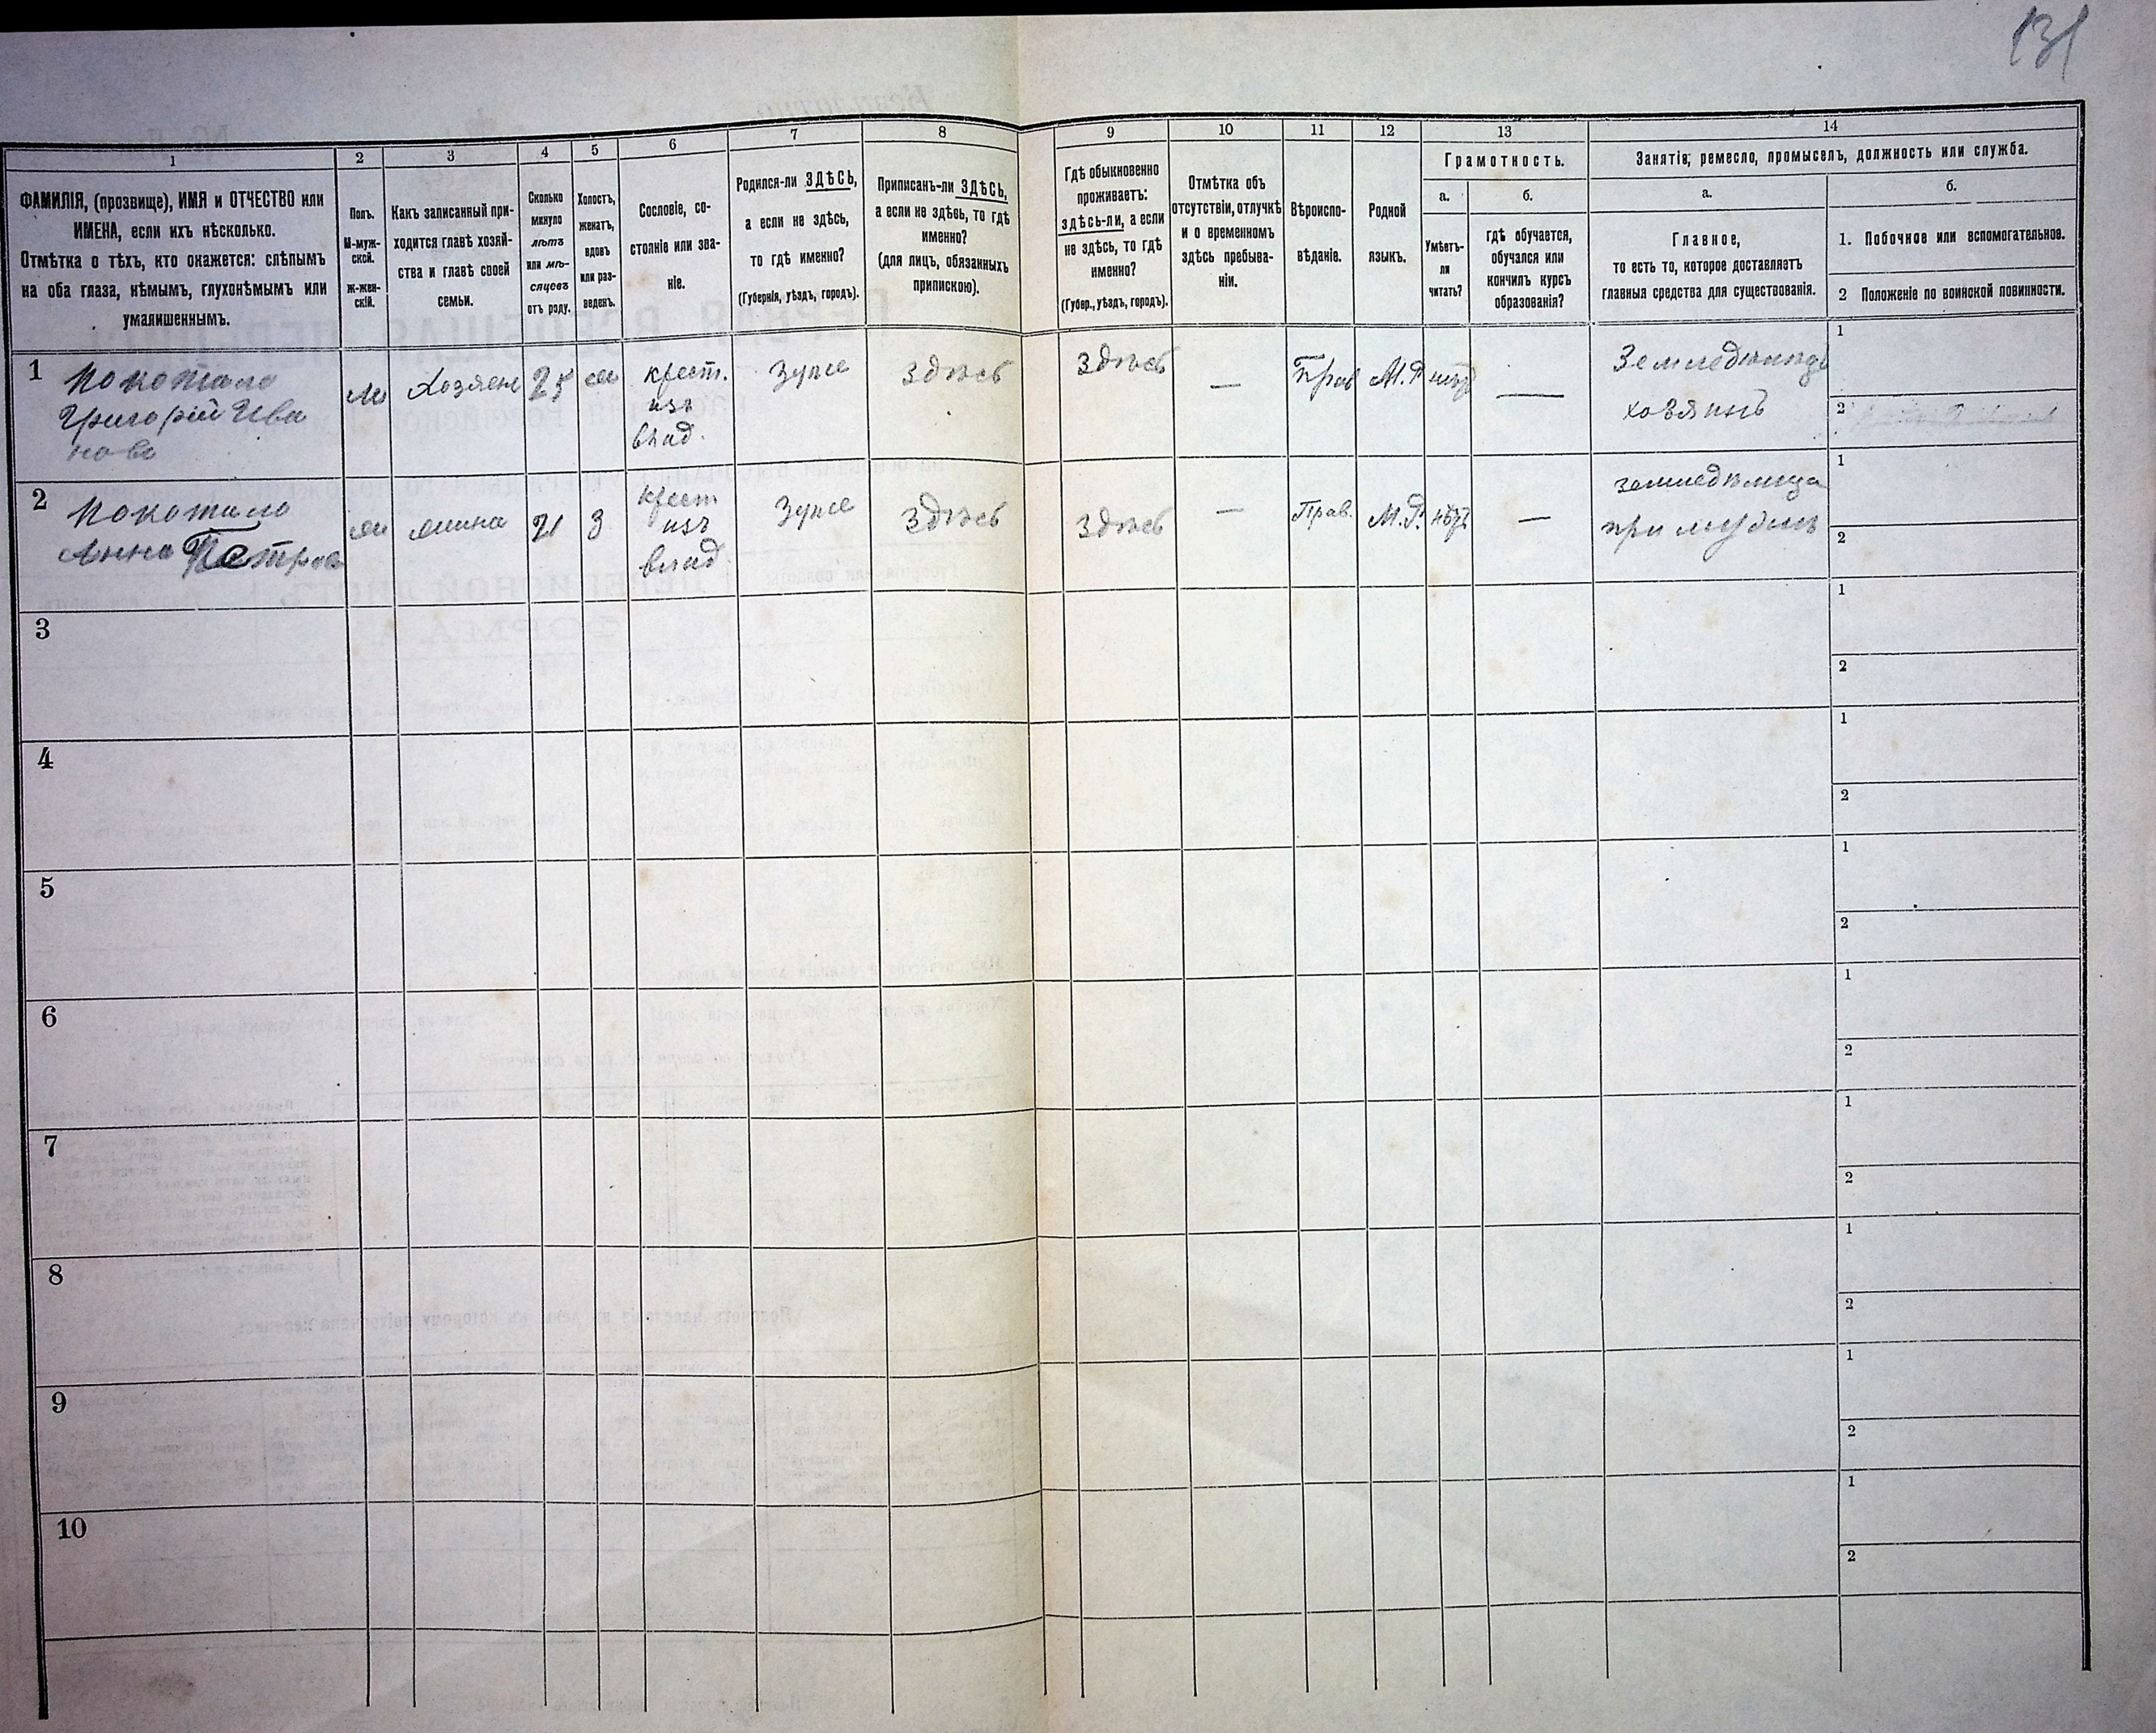 131
1
ФАМИЛІЯ, (прозвище), ИМЯ и ОТЧЕСТВО или
ИМЕНА, если ихъ нѣсколько.
Отмѣтка о тѣхъ, кто окажется: слѣпымъ
на оба глаза, нѣмымъ, глухонѣмымъ или
умалишеннымъ.
2
Полъ.
М-муж-
ской.
Ж-жен-
скій.
3
Какъ записанный при-
ходится главѣ хозяй-
ства и главѣ своей
семьи.
4
Сколько
минуло
лѣтъ
или мѣ-
сяцевъ
отъ роду.
5
Холостъ,
женатъ,
вдовъ
или раз-
веденъ.
6
Сословіе, со-
стояніе или зва-
ніе.
7
Родился-ли ЗДѢСЬ,
а если не здѣсь,
то гдѣ именно?
(Губернія, уѣздъ, городъ).
8
Приписанъ-ли ЗДѢСЬ,
а если не здѣсь, то гдѣ
именно?
(для лицъ, обязанныхъ
припискою).
9
Гдѣ обыкновенно
проживаетъ:
здѣсь-ли, а если
не здѣсь, то гдѣ
именно?
(Губер., уѣздъ, городъ).
10
Отмѣтка объ
отсутствіи, отлучкѣ
и о временномъ
здѣсь пребыва-
ніи.
11
Вѣроиспо-
вѣданіе.
12
Родной
языкъ.
13
Грамотность.
а.
Умѣетъ-
ли
читать?
б.
гдѣ обучается,
обучался или
кончилъ курсъ
образованія?
14
Занятіе, ремесло, промыселъ, должность или служба.
а.
Главное,
то есть то, которое доставляетъ
главныя средства для существованія.
б.
1. Побочное или вспомогательное.
2 Положеніе по воинской повинности.
1
Покотило
Григорій Ива
новъ
м
Хозяинъ
25
ж
крест.
изъ
влад.
здѣсь
здѣсь
—
Прав
М.Р.
нѣтъ
—
Земледѣлецъ
хозяинъ
1
2
2
Покотило
Анна Петров
ж
жина
21
З
крест
изъ
влад.
здѣсь
здѣсь
—
Прав.
М.Р.
нѣтъ
—
земледѣлица
при мужѣ
1
2
3
1
2
4
1
2
5
1
2
6
1
2
7
1
2
8
1
2
9
1
2
10
1
2